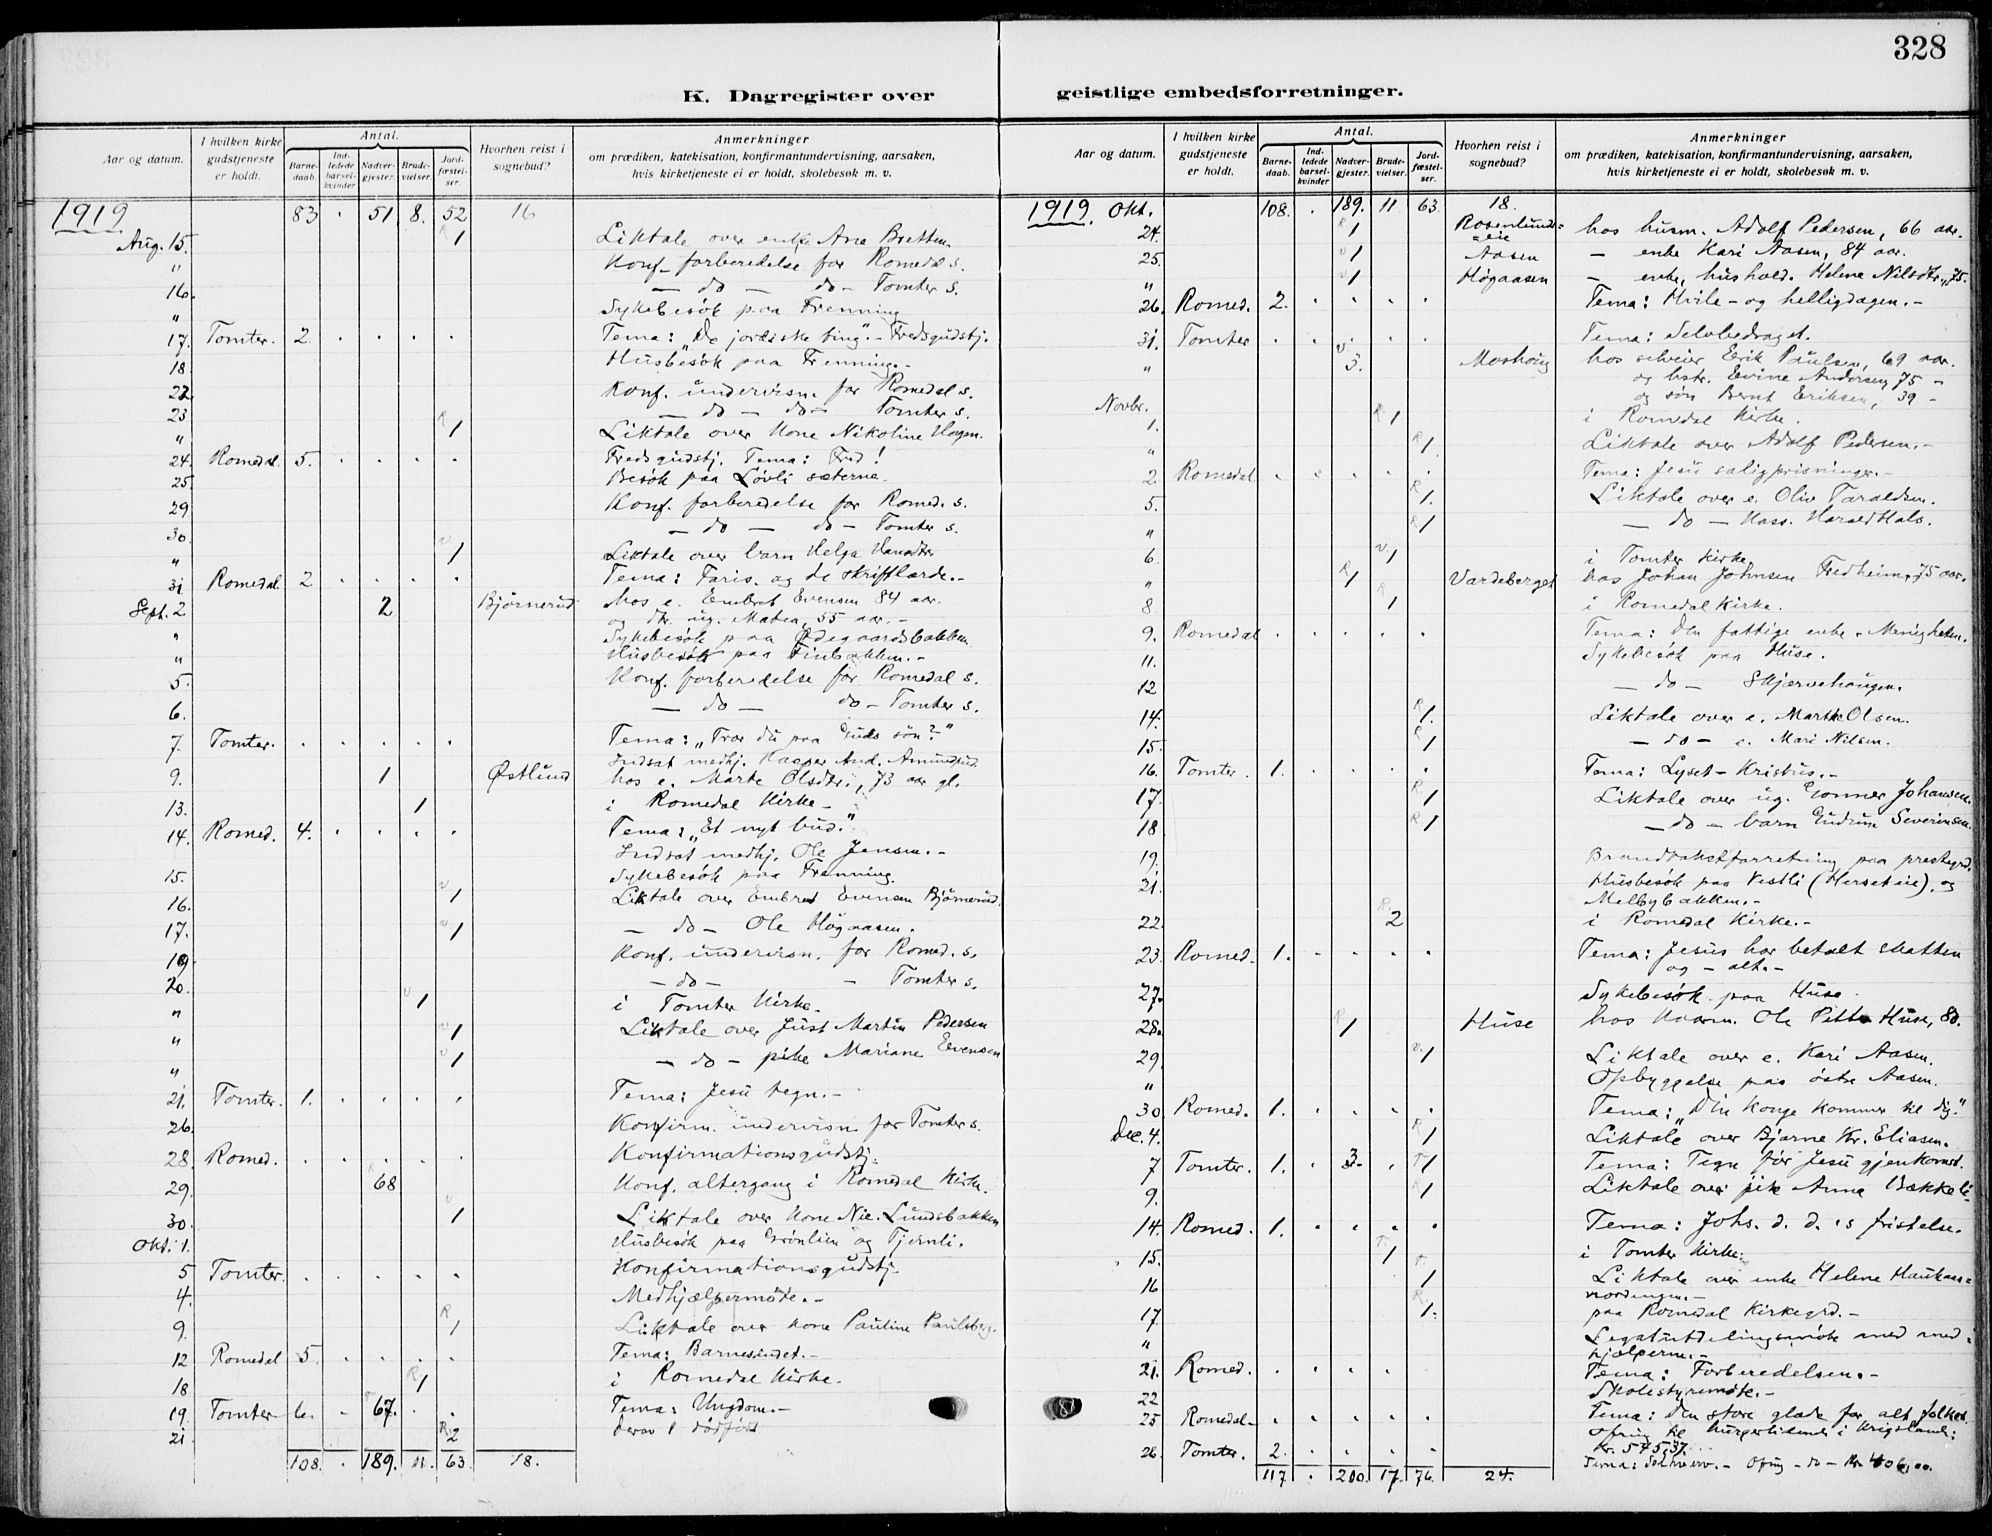 328
K. Dagregister over geistlige embedsforretninger.
Aar og datum. I hvilken kirke gudstjeneste er holdt. Antal. Barne-daab. Ind-ledede barsel-kvinder Nadver-gjester. Brude-vielser. Jord-fæstel-ser. Hvorhen reist i sognebud? Anmerkninger om prædiken, katekisation, konfirmantundervisning, aarsaken, hvis kirketjeneste ei er holdt, skolebesøk m. v.
1919 83 . 51 8. 52 16
Aug. 15. R 1 Liktale over enke Ane Bretten.
" Konf. forberedelse for Romedal s.
16. — do — do — Tomter s.
" Sykebesøk paa Frenning
17. Tomter. 2. . . . . Tema: "De jordiske ting". - Fredsgudstj.
18 Husbesøk paa Frenning. -
22. Konf. undervisn. for Romedal s.
23 — do — do — Tomter s.
" R 1 Liktale over kone Nikoline Hagen.
24. Romedal. 5. . . . . Fredsgudstj. Tema: Fred!
25 Besøk paa Løvli sæterne.
29 Konf. forberedelse for Romed. s.
30. — do — do — Tomter s.
" v 1 Liktale over barn Helga
31 Romedal 2 . . . . Tema: Faris. og de skriftlærde. -
Sept. 2 2 Bjørnerud hos e. Embret Evensen 84 aar.
og dtr. ug. Matea, 55 aar. -
" Sykebesøk paa Ødegaardsbakken
" Husbesøk paa Finbakken. -
5. Konf. forberedelse for Romedal s.
6. — do — do — Tomter s.
7. Tomter. . . . . . Tema: "Tror du paa Guds søn?"
Indsat medhj. Kasper And. Amundrud.
9. 1 Østlund hos e. Marte Olsdtr., 73 aar gl.
13. 1 i Romedal Kirke -
14. Romed. 4. . . . . Tema: "Et nyt bud."
Indsat medhj. Ole Jensen. -
15. Sykebesøk paa Frenning.
16. v 1 Liktale over Embret Evensen Bjørnerud.
17. v 1 — do — Ole Høgaasen.
19. Konf. undervisn. for Romed. s.
20. — do — - Tomter s.
" v 1 i Tomter Kirke. -
" v 1 Liktale over Just Martin Pedersen
" v 1 — do — pike Mariane Evensen
21. Tomter. 1. . . . . Tema: Jesu tegn. -
26. Konfirm. undervisn for Tomter s.
28. Romed. . . . . . Konfirmationsgudstj.
29. 68 Konf. altergang i Romedal Kirke.
30. v 1 Liktale over kone Nie. Lundsbakken
Okt. 1. Husbesøk paa Grønlien og Tjernli.
5 Tomter. . . . . . Konfirmationsgudstj
4. Medhjælpermøte. -
9. R 1 Liktale over kone Pauline Paulsberg.
12 Romedal 5. . . . . Tema: Barnesindet. -
18 R 1 i Romedal Kirke.
19. Tomter 6. . 67. . . Tema: Ungdom. -
21 R 2 derav 1 dødfødt
108. . 189. 11. 63. 18.
Aar og datum. I hvilken kirke gudstjeneste er holdt. Antal. Barne-daab. Ind-ledede barsel-kvinder Nadver-gjester. Brude-vielser. Jord-fæstel-ser. Hvorhen reist i sognebud? Anmerkninger om prædiken, katekisation, konfirmantundervisning, aarsaken, hvis kirketjeneste ei er holdt, skolebesøk m. v.
1919. Okt. 108. . 189. 11 63. 18.
24. R 1 Rosenlunds=eie hos husm. Adolf Pedersen, 66 aar.
25. v 1 Aasen — enke Kari Aasen, 84 aar.
" v 1 Høgaasen — enke, hushold. Helene Nilsdtr., 75.
26. Romed. 2. . . . . Tema: Hvile- og helligdagen. -
31. Tomter . . . . . Tema: Selvbedraget.
" v 3. Moshaug hos selveier Erik Paulsen, 69 aar.
og hstr. Evine Andersen, 75 -
og søn Bernt Eriksen, 39 -
Novbr. 1. R 1 i Romedal Kirke.
" R 1. Liktale over Adolf Pedersen. -
2. Romedal . . . . . Tema: Jesu saligprisninger. -
5. R 1. Liktale over e. Oliv Taraldsen.
" R 1 — do — Harald Hals.
6 v 1 i Tomter Kirke.
" R 1 Vardeberget hos Johan Johnsen Fredheim, 75 aar.
8 R 1 i Romedal Kirke.
9. Romedal . . . . . Tema: Den fattige enke. - Menigheten.
11. Sykebesøk paa Huse.
12 — do — Skjervehaugen.
14. R 1. Liktale over e. Marthe Olsen.
15. R 1 — do — e. Mari Nilsen.
16. Tomter. 1. . . . . Tema: Lyset - Kristus. -
17. R 1 Liktale over ug. Gonner Johansen.
18 R 1 — do — barn Gudrun Severinsen.
19. Brandtakstforretning paa prestegrd.
21. Husbesøk paa Vestli (Herset eie), og
Melbybakken. -
22. R. 2 i Romedal Kirke. -
23. Romed. 1. . . . . Tema: Jesus har betalt skatten
og - alt. -
27. Sykebesøk paa Huse.
28. R 1 Huse hos Ole Huse, 80.
29. v. 1 Liktale over e. Kari Aasen.
" Opbyggelse paa østre Aasen.
30 Romed. 1. . . . . Tema: "Din konge kommer til dig."
Dec. 4. R 1 Liktale over Bjarne Kr. Eliasen.
7 Tomter. 1. . 3. . T 1 Tema: Tegn før Jesu gjenkomst.
9. R 1 Liktale over pike Anna Bækkeli
14. Romed. 1. . . . . Tema: Johs. d. d.'s fristelse.
15. T. 1 i Tomter Kirke.
16 T. 1 Liktale over enke Helene Haukaas=
nordengen. -
17. R. 1. paa Romedal Kirkegrd. -
" Legatutdelingsmøte med med=
hjælperne. -
21. Romed. . . . . Tema: Forberedelsen. -
22 Skolestyremøte. -
25 Romedal - . . . . . Tema: Den store glæde for alt folket.
Ofring til hungerlidende i krigslande:
Kr. 545,37.
26. Tomter. 2. . . . . Tema: - Ofring - do - Kr 406,00.
117 . 200. 17. 76. 24.